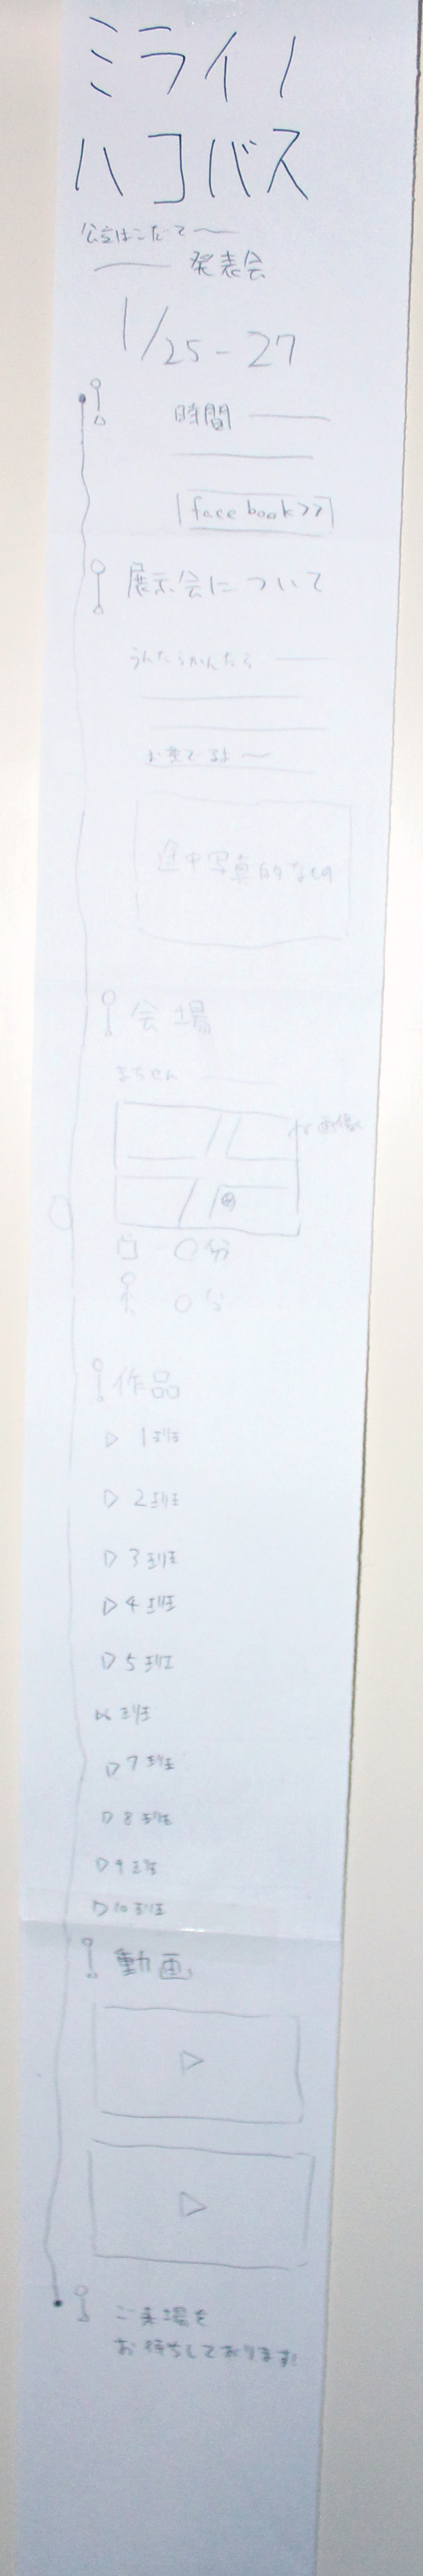 ミライノ
ハコバス
公立はこだて〜
発表会
1/25-27
時間
facebook>>
展示会について
うんたらかんたら
お来てるよ〜
途中写真的なもの
会場
まちせん
〇分
〇分
作品
▷ 1班
▷ 2班
▷ 3班
▷ 4班
▷ 5班
▷6班
▷7班
▷8班
▷9班
▷10班
動画
ご来場を
お待ちしております!